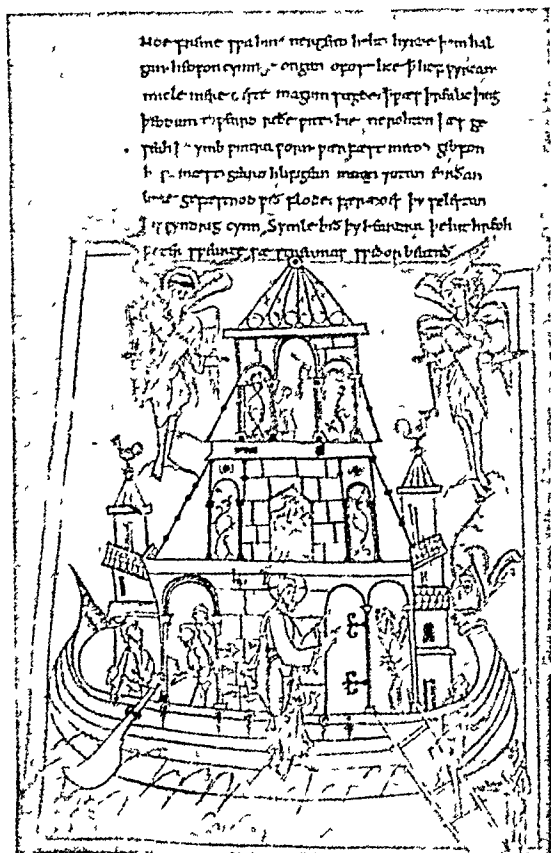 Noe fremede swa hine nergend heht hyrde þam hal
gan heofon cyninge ongan ofostlice þ hof wyrcan
micle mere magum sægde þ wæs þrealic þing
þeodum toweard reðe wite hie ne rohton þæs ge
seah þa ymb wintra worn wærfæst metod geofon
mæst gearo hlifigean innan utan eorðan
lime gefæstnod wið flode fær noes þy selestan
þ is syndrig cynn. Symle bið þy heardra þe hit hreoh
wæter swearte sæ streamas swiðor beatað